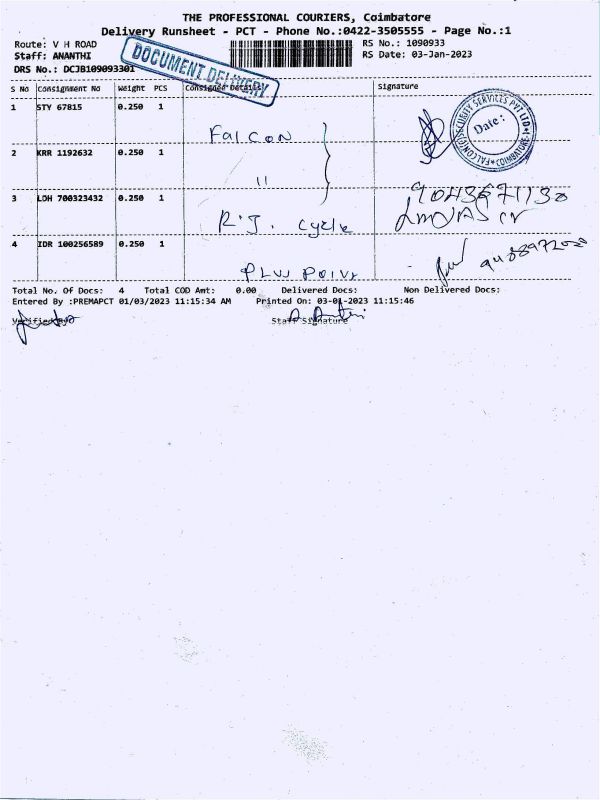 THE PROFESSIONAL COURIERS, Coimbatore
Delivery Runsheet - PCT - Phone No.:0422-3505555 - Page No.:1
Route: V H ROAD
RS No.: 1090933
Staff: ANANTHI
RS Date: 03-Jan-2023
DRS No.: DCJB109093301
DOCUMENT DELIVERY
S No Consignment No Weight PCS Consignee Details Signature
1 STY 67815 0.250 1
FalCON
FALCON(C)SECURITY SERVICES PVT LTD
COIMBATORE
Date:
2 KRR 1192632 0.250 1
"
3 LDH 700323432 0.250 1
R.J. Cycle
9043671130
4 IDR 100256589 0.250 1
Total No. Of Docs: 4 Total COD Amt: 0.00 Delivered Docs: Non Delivered Docs:
Entered By :PREMAPCT 01/03/2023 11:15:34 AM Printed On: 03-01-2023 11:15:46
Verified By
Staff Signature